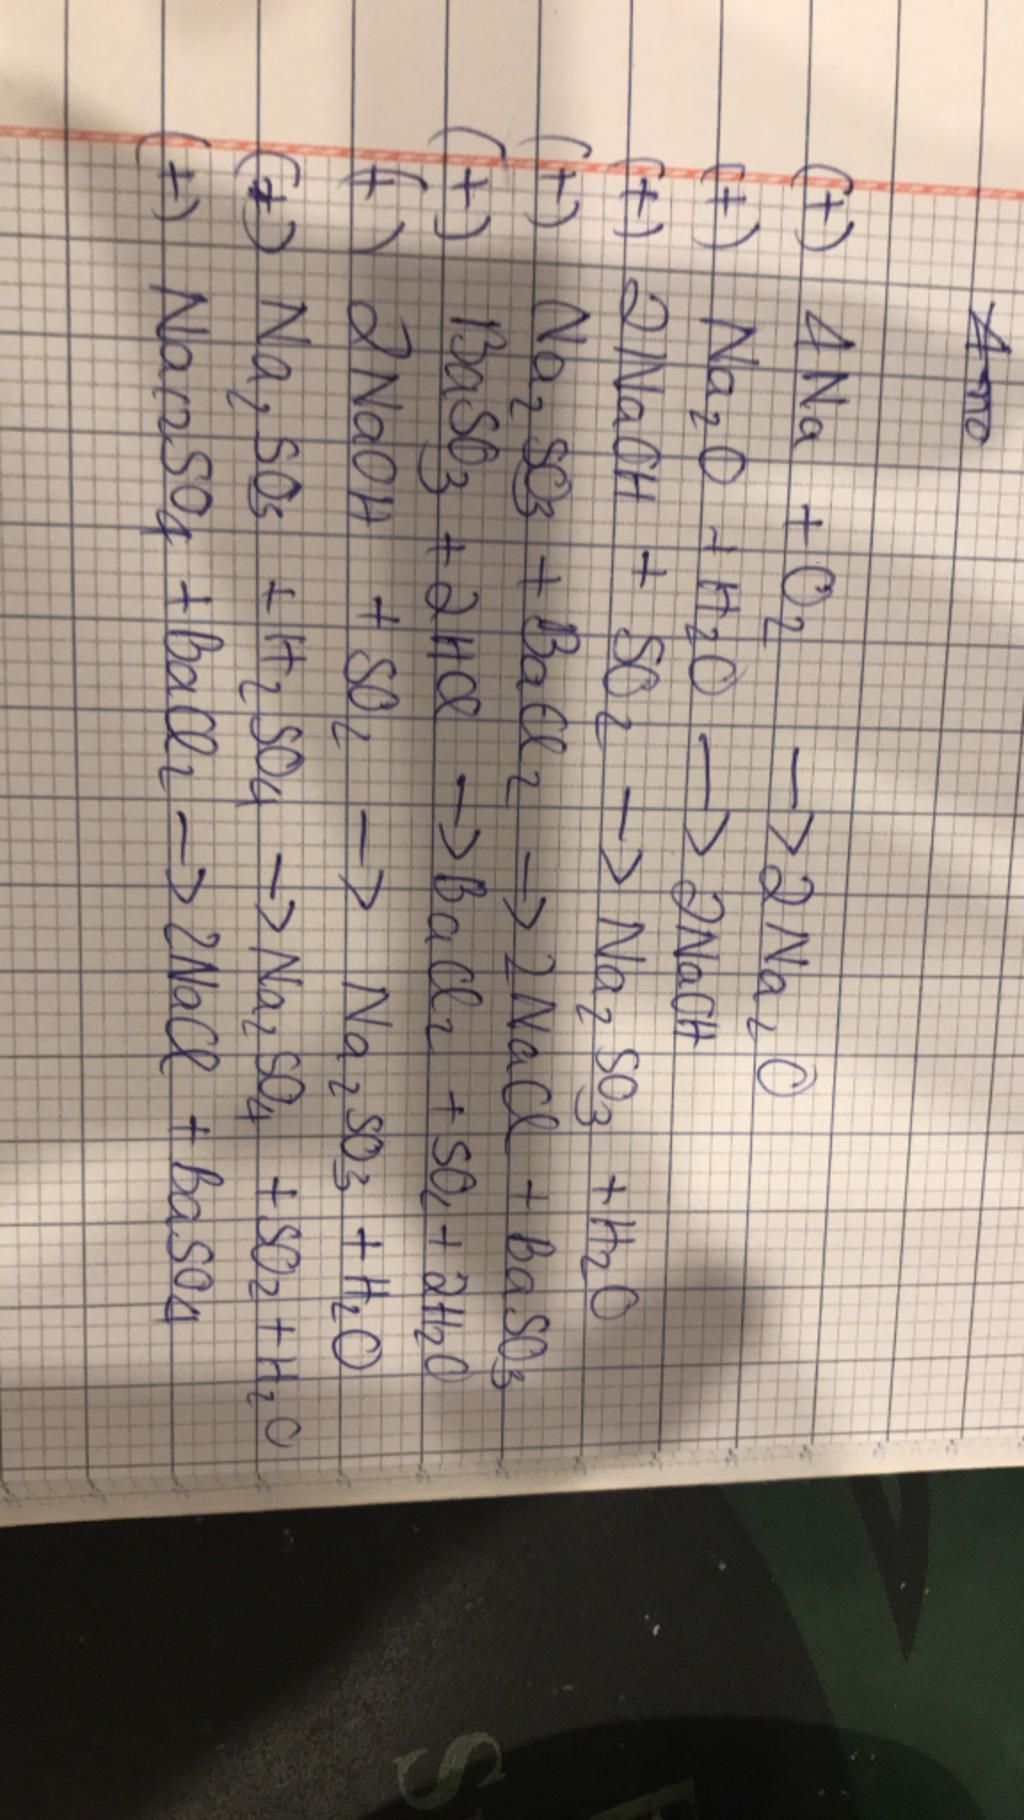 (+) 4Na + O2 → 2Na2O
(+) Na2O + H2O → 2NaOH
(+) 2NaOH + SO2 → Na2SO3 + H2O
(+) Na2SO3 + BaCl2 → 2NaCl + BaSO3
(+) BaSO3 + 2HCl → BaCl2 + SO2 + 2H2O
(+) 2NaOH + SO2 → Na2SO3 + H2O
(+) Na2SO3 + H2SO4 → Na2SO4 + SO2 + H2O
(+) Na2SO4 + BaCl2 → 2NaCl + BaSO4